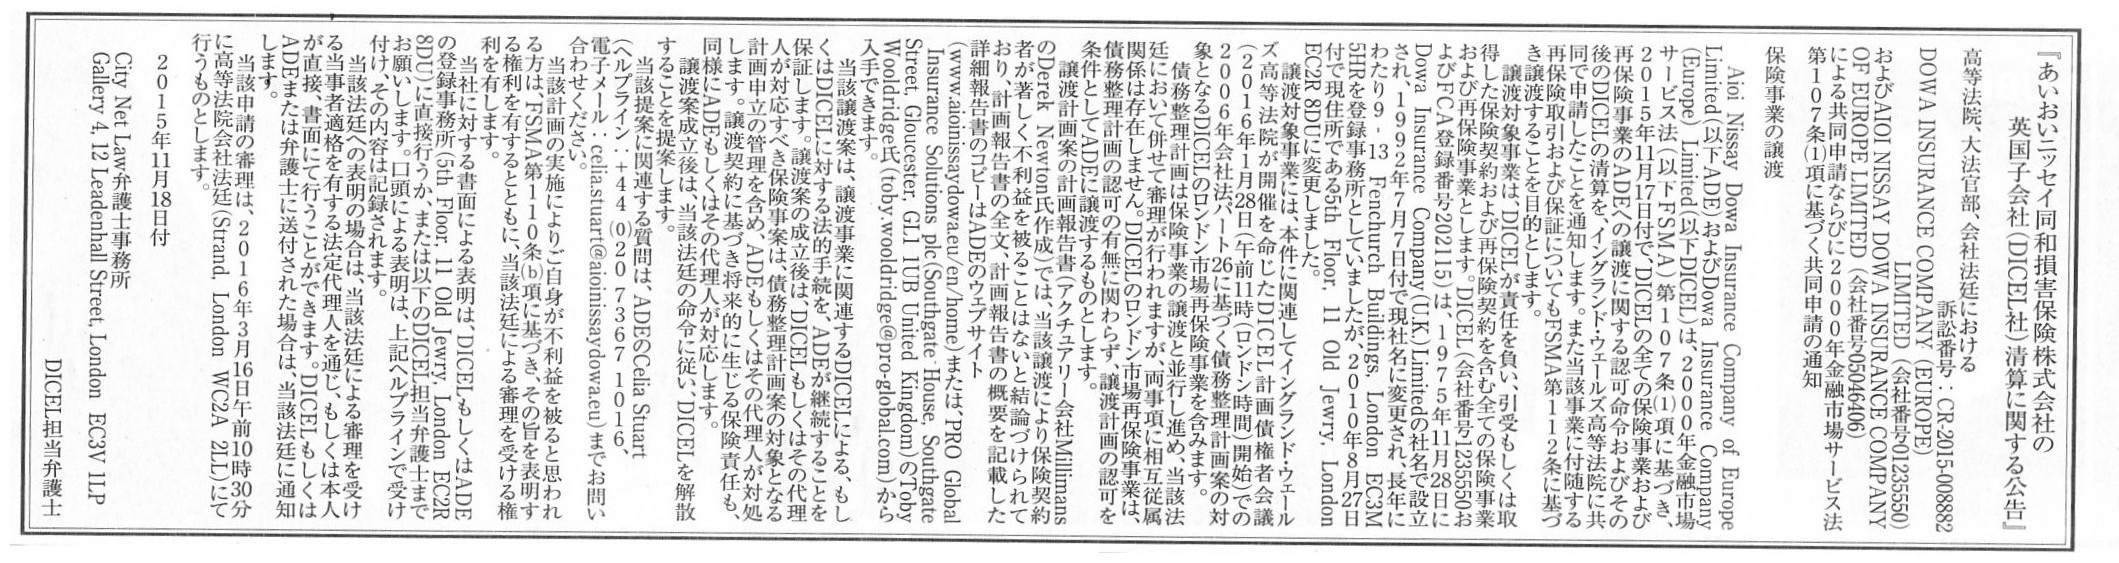 『あいおいニッセイ同和損害保険株式会社の
英国子会社（DICEL社）清算に関する公告』
訴訟番号：CR-2015-008882
高等法院、大法官部、会社法廷における
DOWA INSURANCE COMPANY (EUROPE)
LIMITED（会社番号01235550）
およびAIOI NISSAY DOWA INSURANCE COMPANY
OF EUROPE LIMITED（会社番号05046406）
による共同申請ならびに2000年金融市場サービス法
第107条(1)項に基づく共同申請の通知
保険事業の譲渡
Aioi Nissay Dowa Insurance Company of Europe
Limited(以下ADE)およびDowa Insurance Company
(Europe) Limited(以下DICEL)は、2000年金融市場
サービス法(以下FSMA)第107条(1)項に基づき、
2015年11月17日付で、DICELの全ての保険事業および
再保険事業のADEへの譲渡に関する認可命令およびその
後のDICELの清算を、イングランド・ウェールズ高等法院に共
同で申請したことを通知します。また当該事業に付随する
再保険取引および保証についてもFSMA第112条に基づ
き譲渡することを目的とします。
譲渡対象事業は、DICELが責任を負い、引受もしくは取
得した保険契約および再保険契約を含む全ての保険事業
および再保険事業とします。DICEL(会社番号1235550お
よびFCA登録番号202115)は、1975年11月28日に
Dowa Insurance Company(U.K) Limitedの社名で設立
され、1992年7月7日付で現社名に変更され、長年に
わたり9-13 Fenchurch Buildings, London EC3M
5HRを登録事務所としていましたが、2010年8月27日
付で現住所である5th Floor, 11 Old Jewry, London
EC2R 8DUに変更しました。
譲渡対象事業には、本件に関連してイングランド・ウェール
ズ高等法院が開催を命じたDICEL計画債権者会議
(2016年1月28日(午前11時(ロンドン時間)開始)での
2006年会社法パート26に基づく債務整理計画案の対
象となるDICELのロンドン市場再保険事業を含みます。
債務整理計画は保険事業の譲渡と並行し進め、当該法
廷において併せて審理が行われますが、両事項に相互従属
関係は存在しません。DICELのロンドン市場再保険事業は、
債務整理計画の認可の有無に関わらず、譲渡計画の認可を
条件としてADEに譲渡するものとします。
譲渡計画案の計画報告書(アクチュアリー会社Millimans
のDerek Newton氏作成)では、当該譲渡により保険契約
者が著しく不利益を被ることはないと結論づけられて
おり、計画報告書の全文、計画報告書の概要を記載した
詳細報告書のコピーはADEのウェブサイト
(www.aioinissaydowa.eu/en/home)または、PRO Global
Insurance Solutions plc(Southgate House, Southgate
Street, Gloucester, GL1 1UB United Kingdom)のToby
Wooldridge氏(toby.wooldridge@pro-global.com)から
入手できます。
当該譲渡案は、譲渡事業に関連するDICELによる、もし
くはDICELに対する法的手続を、ADEが継続することを
保証します。譲渡案の成立後は、DICELもしくはその代理
人が対応すべき保険事案は、債務整理計画案の対象となる
計画申立の管理を含め、ADEもしくはその代理人が対処
します。譲渡契約に基づき将来的に生じる保険責任も、
同様にADEもしくはその代理人が対応します。
譲渡案成立後は、当該法廷の命令に従い、DICELを解散
することを提案します。
当該提案に関連する質問は、ADEのCelia Stuart
(ヘルプライン：+44 (0)20 7367 1016、
電子メール：celia.stuart@aioinissaydowa.eu)までお問い
合わせください。
当該計画の実施によりご自身が不利益を被ると思われ
る方は、FSMA第110条(b)項に基づき、その旨を表明す
る権利を有するとともに、当該法廷による審理を受ける権
利を有します。
当社に対する書面による表明は、DICELもしくはADE
の登録事務所(5th Floor, 11 Old Jewry, London EC2R
8DU)に直接行うか、または以下のDICEL担当弁護士まで
お願いします。口頭による表明は、上記ヘルプラインで受け
付け、その内容は記録されます。
当該法廷への表明の場合は、当該法廷による審理を受け
る当事者適格を有する法定代理人を通じ、もしくは本人
が直接、書面にて行うことができます。DICELもしくは
ADEまたは弁護士に送付された場合は、当該法廷に通知
します。
当該申請の審理は、2016年3月16日午前10時30分
に高等法院会社法廷(Strand, London WC2A 2LL)にて
行うものとします。
2015年11月18日付
City Net Law弁護士事務所
Gallery 4, 12 Leadenhall Street, London EC3V 1LP
DICEL担当弁護士